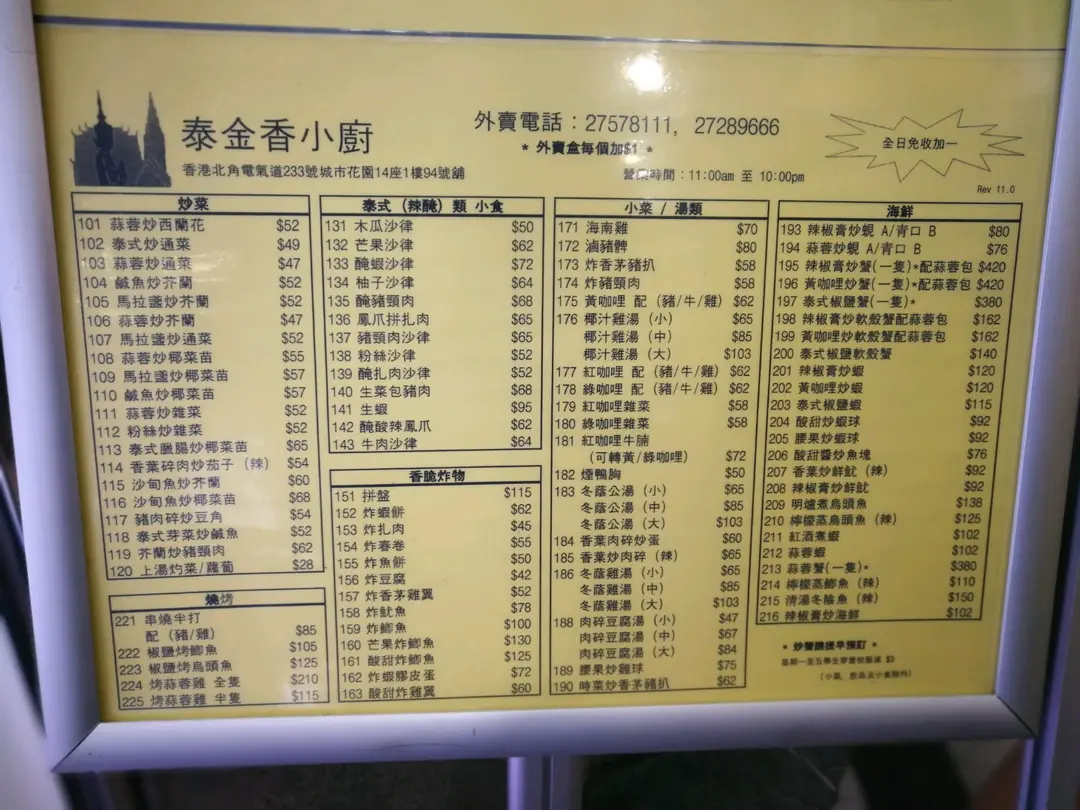 泰金香小廚
外賣電話：27578111, 27289666
* 外賣盒每個加$1 *
全日免收加一
香港北角電氣道233號城市花園14座1樓94號舖
營業時間：11:00am 至 10:00pm
Rev 11.0
炒菜
101 蒜蓉炒西蘭花 $52
102 泰式炒通菜 $49
103 蒜蓉炒通菜 $47
104 鹹魚炒芥蘭 $52
105 馬拉盞炒芥蘭 $52
106 蒜蓉炒芥蘭 $47
107 馬拉盞炒通菜 $52
108 蒜蓉炒椰菜苗 $55
109 馬拉盞炒椰菜苗 $57
110 鹹魚炒椰菜苗 $57
111 蒜蓉炒雜菜 $52
112 粉絲炒雜菜 $52
113 泰式臘腸炒椰菜苗 $65
114 香葉碎肉炒茄子（辣） $54
115 沙甸魚炒芥蘭 $60
116 沙甸魚炒椰菜苗 $68
117 豬肉碎炒豆角 $54
118 泰式芽菜炒鹹魚 $52
119 芥蘭炒豬頸肉 $62
120 上湯灼菜/蘿蔔 $28
燒烤
221 串燒半打
配（豬/雞） $85
222 椒鹽烤鯽魚 $105
223 椒鹽烤烏頭魚 $125
224 烤蒜蓉雞 全隻 $210
225 烤蒜蓉雞 半隻 $115
泰式（辣醃）類 小食
131 木瓜沙律 $50
132 芒果沙律 $62
133 醃蝦沙律 $72
134 柚子沙律 $64
135 醃豬頸肉 $68
136 鳳爪拼扎肉 $65
137 豬頸肉沙律 $65
138 粉絲沙律 $52
139 醃扎肉沙律 $52
140 生菜包豬肉 $68
141 生蝦 $95
142 醃酸辣鳳爪 $62
143 牛肉沙律 $64
香脆炸物
151 拼盤 $115
152 炸蝦餅 $62
153 炸扎肉 $45
154 炸春卷 $55
155 炸魚餅 $50
156 炸豆腐 $42
157 炸香茅雞翼 $52
158 炸魷魚 $78
159 炸鯽魚 $100
160 芒果炸鯽魚 $130
161 酸甜炸鯽魚 $125
162 炸蝦膠皮蛋 $72
163 酸甜炸雞翼 $60
小菜 / 湯類
171 海南雞 $70
172 滷豬髀 $80
173 炸香茅豬扒 $58
174 炸豬頸肉 $58
175 黃咖哩 配（豬/牛/雞） $62
176 椰汁雞湯（小） $65
椰汁雞湯（中） $85
椰汁雞湯（大） $103
177 紅咖哩 配（豬/牛/雞） $62
178 綠咖哩 配（豬/牛/雞） $62
179 紅咖哩雜菜 $58
180 綠咖哩雜菜 $58
181 紅咖哩牛腩
（可轉黃/綠咖哩） $72
182 煙鴨胸 $50
183 冬蔭公湯（小） $65
冬蔭公湯（中） $85
冬蔭公湯（大） $103
184 香葉肉碎炒蛋 $60
185 香葉炒肉碎（辣） $65
186 冬蔭雞湯（小） $65
冬蔭雞湯（中） $85
冬蔭雞湯（大） $103
188 肉碎豆腐湯（小） $47
肉碎豆腐湯（中） $67
肉碎豆腐湯（大） $84
189 腰果炒雞球 $75
190 時菜炒香茅豬扒 $62
海鮮
193 辣椒膏炒蜆 A/青口 B $80
194 蒜蓉炒蜆 A/青口 B $76
195 辣椒膏炒蟹(一隻)*配蒜蓉包 $420
196 黃咖哩炒蟹(一隻)*配蒜蓉包 $420
197 泰式椒鹽蟹(一隻)* $380
198 辣椒膏炒軟殼蟹配蒜蓉包 $162
199 黃咖哩炒軟殼蟹配蒜蓉包 $162
200 泰式椒鹽軟殼蟹 $140
201 辣椒膏炒蝦 $120
202 黃咖哩炒蝦 $120
203 泰式椒鹽蝦 $115
204 酸甜炒蝦球 $92
205 腰果炒蝦球 $92
206 酸甜醬炒魚塊 $76
207 香葉炒鮮魷（辣） $92
208 辣椒膏炒鮮魷 $92
209 明爐煮烏頭魚 $138
210 檸檬蒸烏頭魚（辣） $125
211 紅酒煮蝦 $102
212 蒜蓉蝦 $102
213 蒜蓉蟹(一隻)* $380
214 檸檬蒸鯽魚（辣） $110
215 清湯冬陰魚（辣） $150
216 辣椒膏炒海鮮 $102
* 炒蟹請提早預訂 *